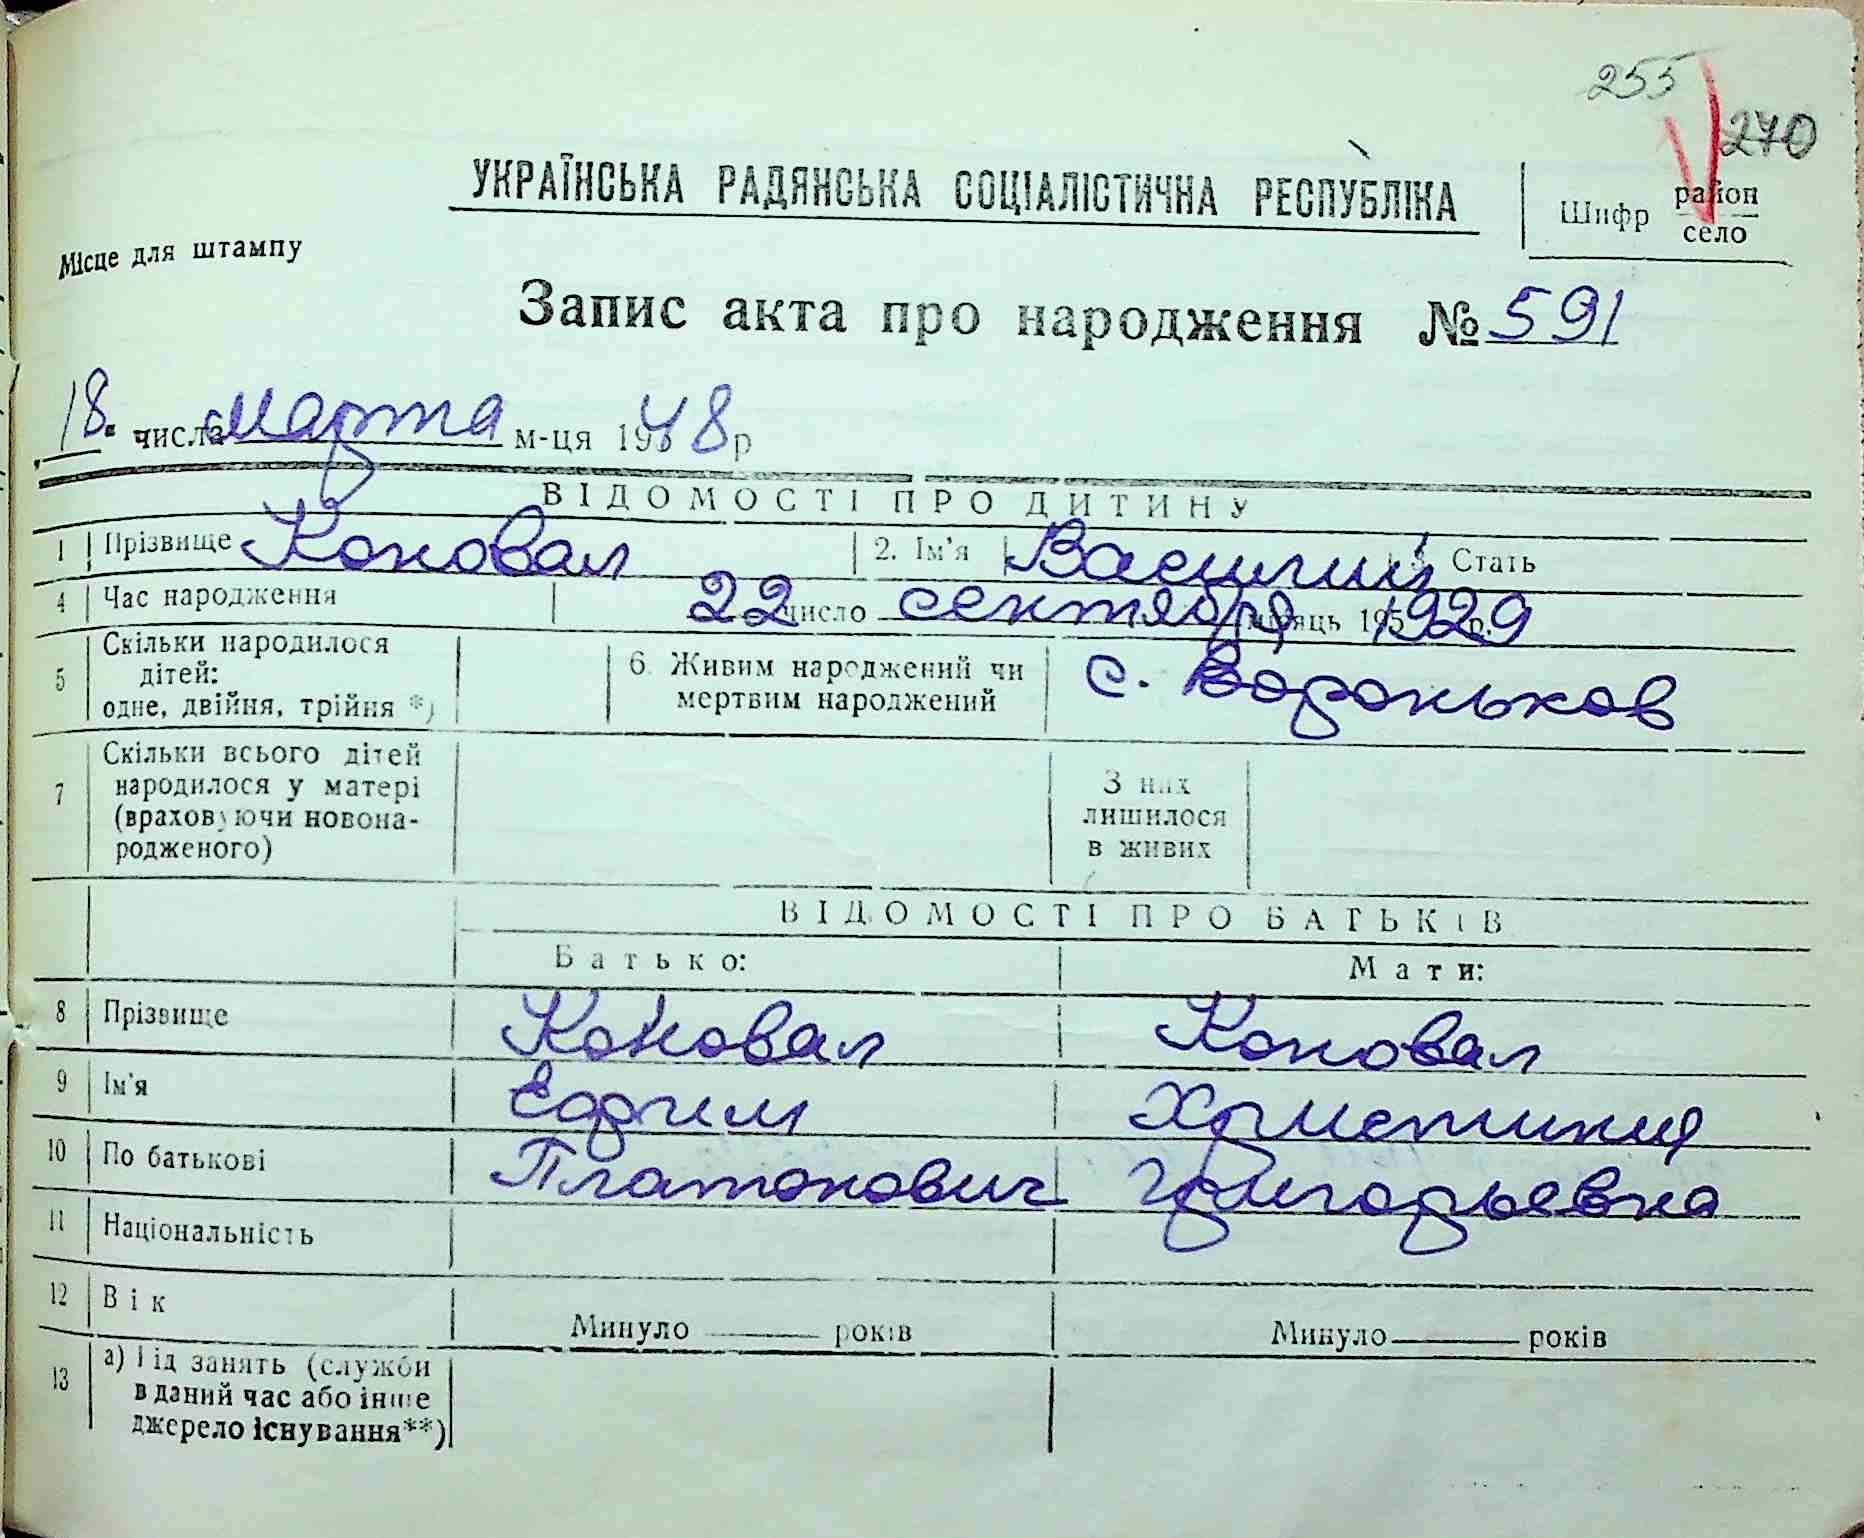 255
270
УКРАЇНСЬКА РАДЯНСЬКА СОЦІАЛІСТИЧНА РЕСПУБЛІКА
Шифр район
село
Місце для штампу
Запис акта про народження № 591
18 числа марта м-ця 1948 р
ВІДОМОСТІ ПРО ДИТИНУ
1 Прізвище Коновал 2. Ім'я Василий 3. Стать
4 Час народження 22 число сентября місяць 195 1929 р.
5 Скільки народилося дітей: одне, двійня, трійня *) 6. Живим народжений чи мертвим народжений с. Вороньков
7 Скільки всього дітей народилося у матері (враховуючи новонародженого) З них лишилося в живих
ВІДОМОСТІ ПРО БАТЬКІВ
Батько: Мати:
8 Прізвище Коновал Коновал
9 Ім'я Ефрим Христиния
10 По батькові Платонович Григорьевна
11 Національність
12 Вік Минуло років Минуло років
13 а) Рід занять (служби в даний час або інше джерело існування**)